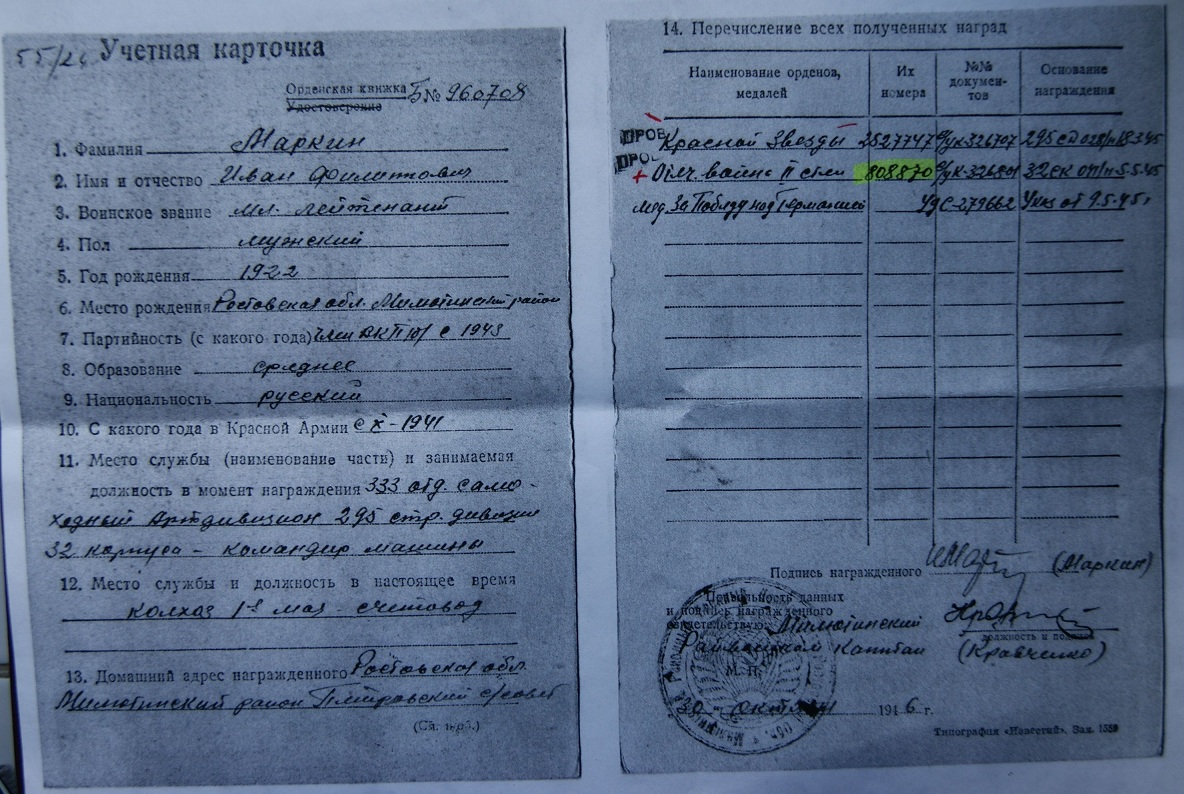 55/26 Учетная карточка
Орденская книжка Б№ 960708
Удостоверение
1. Фамилия Маркин
2. Имя и отчество Иван Филиппович
3. Воинское звание мл. лейтенант
4. Пол мужской
5. Год рождения 1922
6. Место рождения Ростовская обл. Милютинский район
7. Партийность (с какого года) член ВКП(б) с 1943
8. Образование среднее
9. Национальность русский
10. С какого года в Красной Армии с X-1941
11. Место службы (наименование части) и занимаемая
должность в момент награждения 333 отд само-
ходный Артдивизион 295 стр. дивизии
32 корпуса - командир машины
12. Место службы и должность в настоящее время
колхаз 1е мая - счетовод
13. Домашний адрес награжденного Ростовская обл.
Милютинский район с/совет
(См. )
14. Перечисление всех полученных наград
Наименование орденов, медалей
Их номера
№№ документов
Основание награждения
ПРОВ Красной Звезды 2527747 с/ук 326707 295 сд 18.3.45
ПРОВ + Отеч. война II степ 808870 32 ск от 5.5.45
мед. За Победу над Германией Указ от 9.5.45г
Подпись награжденного (Маркин)
Правильность данных
и подпись награжденного
свидетельствую: Милютинский
Райвоенком Капитан (Кравченко)
должность и подпись
М. П.
октября 1946 г.
Типография «Известий». Зак. 1559